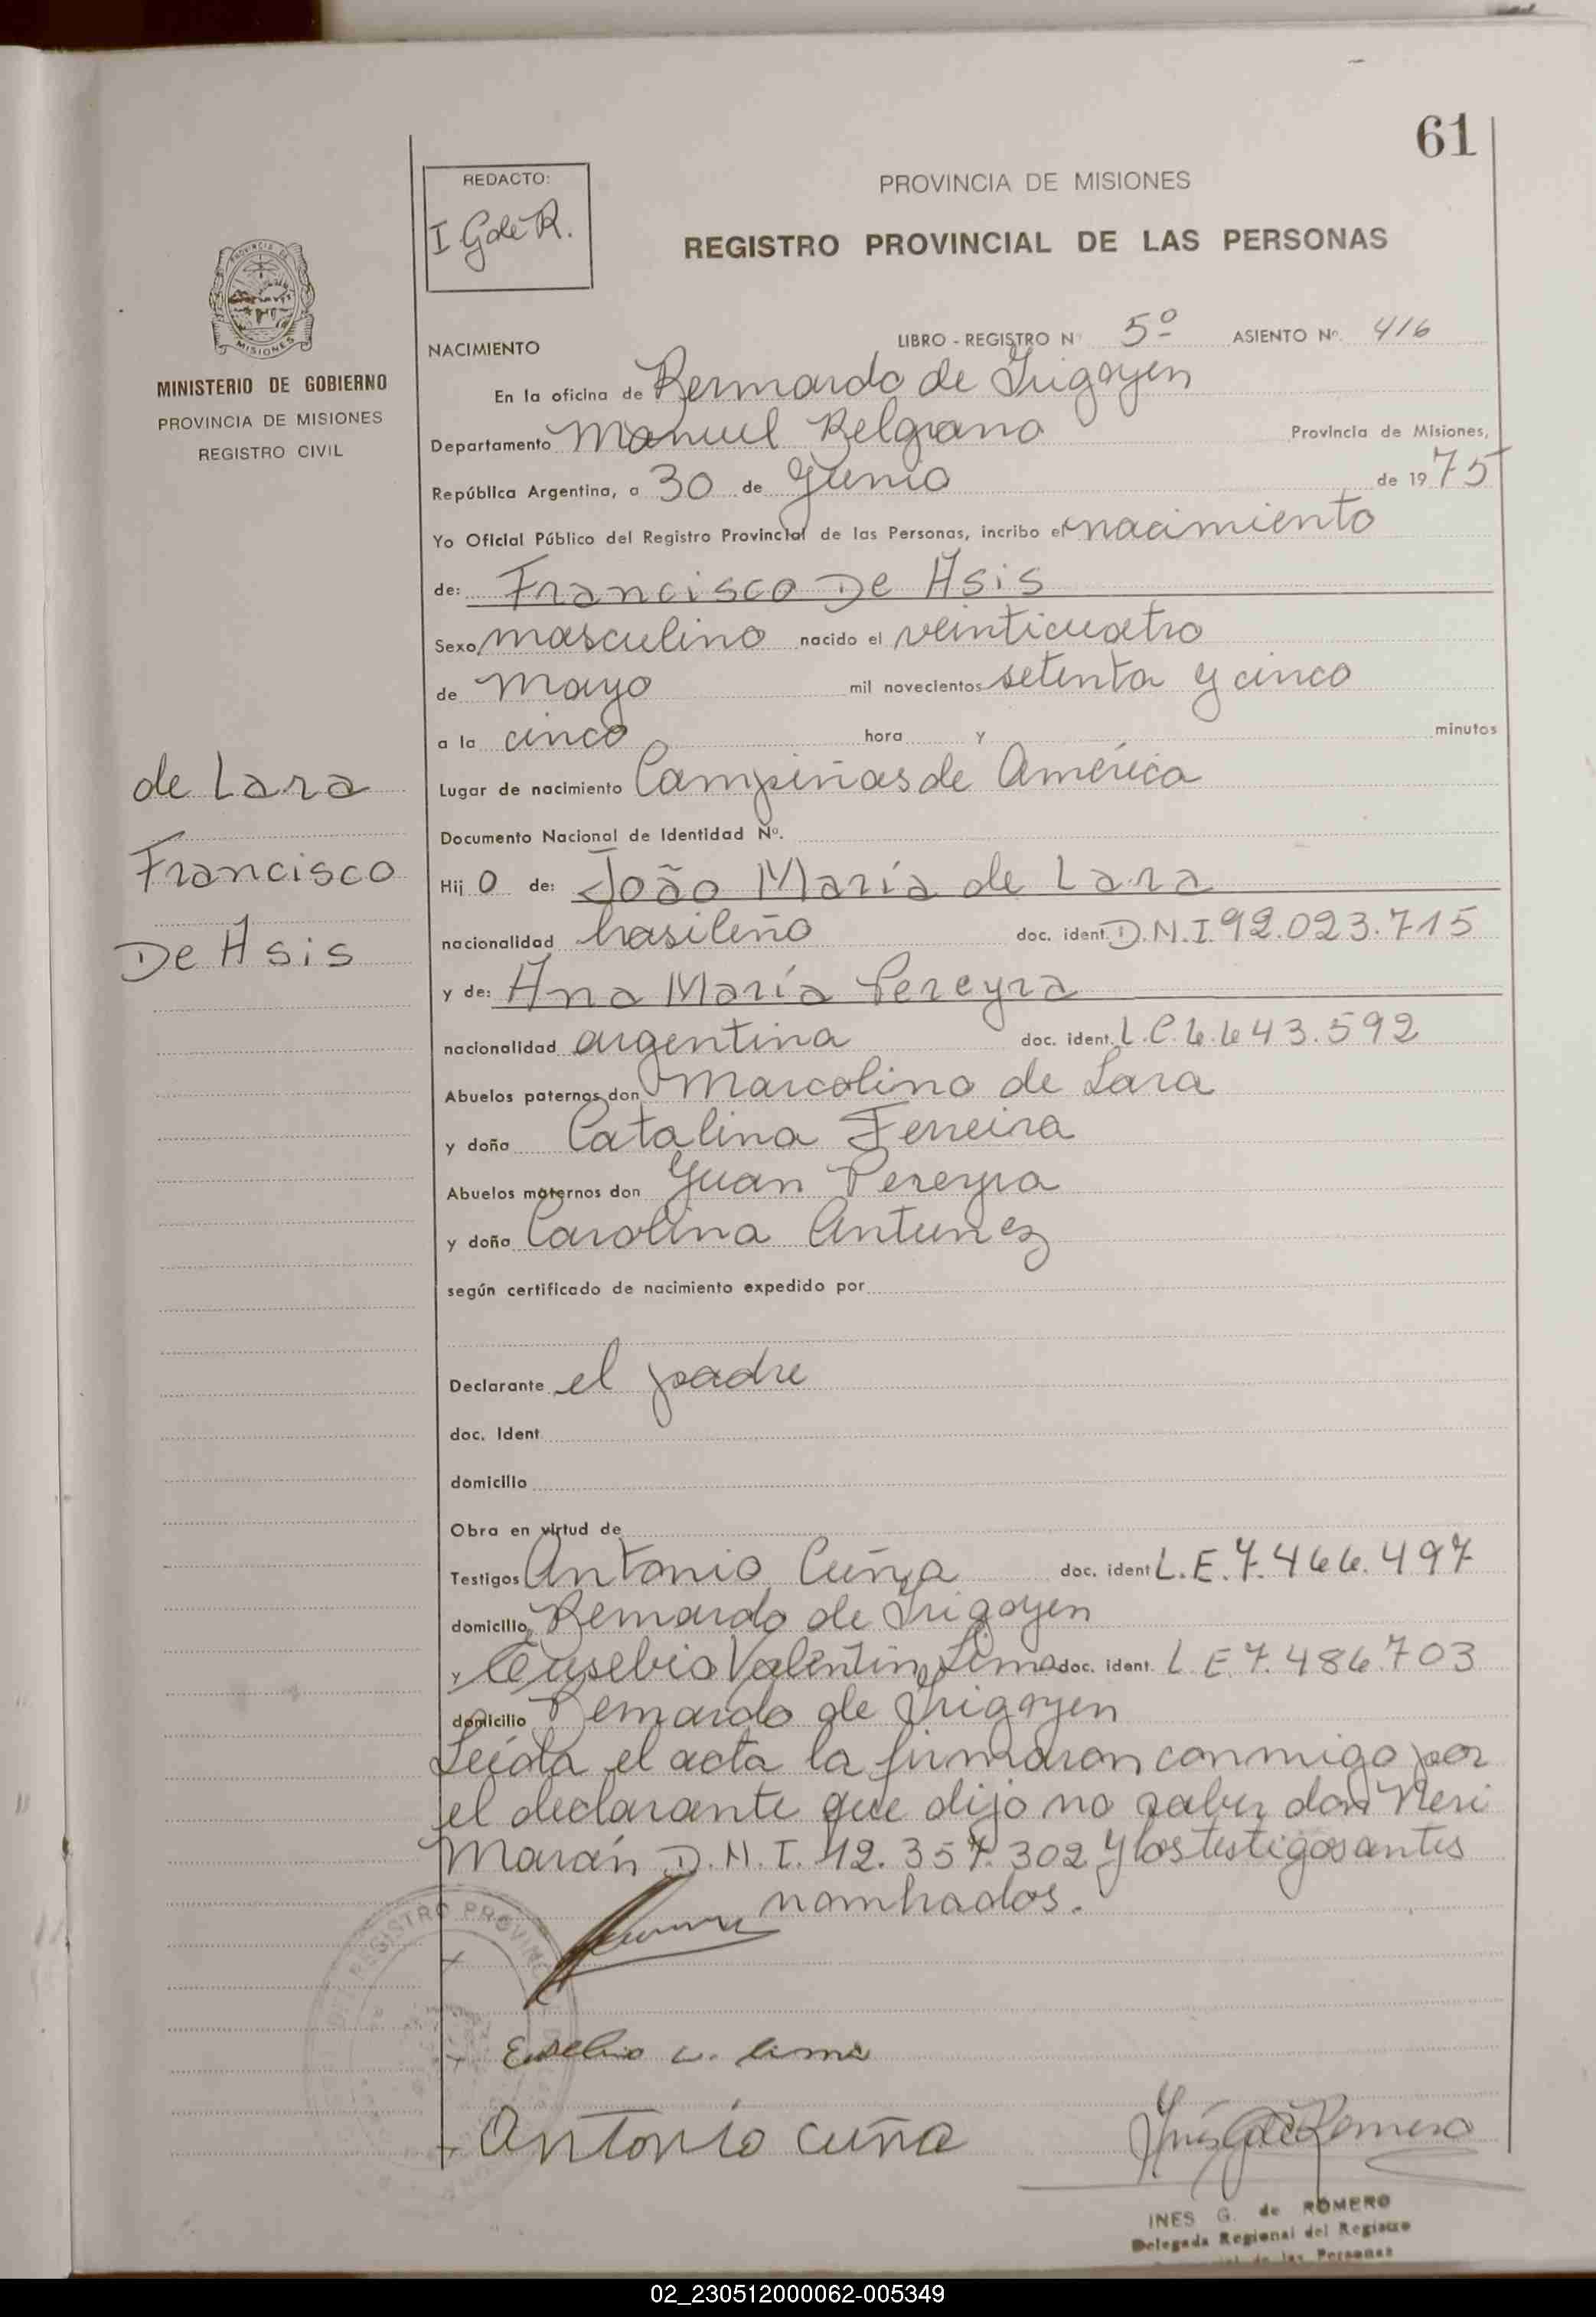 61
REDACTO:
I G de R.
PROVINCIA DE MISIONES
REGISTRO PROVINCIAL DE LAS PERSONAS
PROVINCIA DE
MISIONES
MINISTERIO DE GOBIERNO
PROVINCIA DE MISIONES
REGISTRO CIVIL
NACIMIENTO LIBRO - REGISTRO Nº 5º ASIENTO Nº. 416
En la oficina de Bernardo de Irigoyen
Departamento Manuel Belgrano Provincia de Misiones,
República Argentina, a 30 de Junio de 1975
Yo Oficial Público del Registro Provincial de las Personas, incribo el nacimiento
de: Francisco De Asis
Sexo masculino nacido el veinticuatro
de Mayo mil novecientos setenta y cinco
a la cinco hora y minutos
de Lara
Francisco
De Asis
Lugar de nacimiento Campiñas de América
Documento Nacional de Identidad Nº.
Hij o de: João María de Lara
nacionalidad brasileño doc. ident. D.N.I. 92.023.715
y de: Ana María Pereyra
nacionalidad argentina doc. ident. L.C. 6.643.592
Abuelos paternos don Marcolino de Lara
y doña Catalina Ferreira
Abuelos maternos don Juan Pereyra
y doña Carolina Antunez
según certificado de nacimiento expedido por
Declarante el padre
doc. Ident
domicilio
Obra en virtud de
Testigos Antonio Cuña doc. ident L.E. 7.466.497
domicilio Bernardo de Irigoyen
y Eusebio Valentin Lima doc. ident. L.E. 7.486.703
domicilio Bernardo de Irigoyen
Leída el acta la firmaron conmigo por
el declarante que dijo no saber don Neri
Marán D.N.I. 12.357.302 y los testigos antes
nombrados.
REGISTRO PROVINC
Eusebio v. lima
Antonio cuña
Inés G de Romero
INES G. de ROMERO
Delegada Regional del Registro
de las Personas
02_230512000062-005349